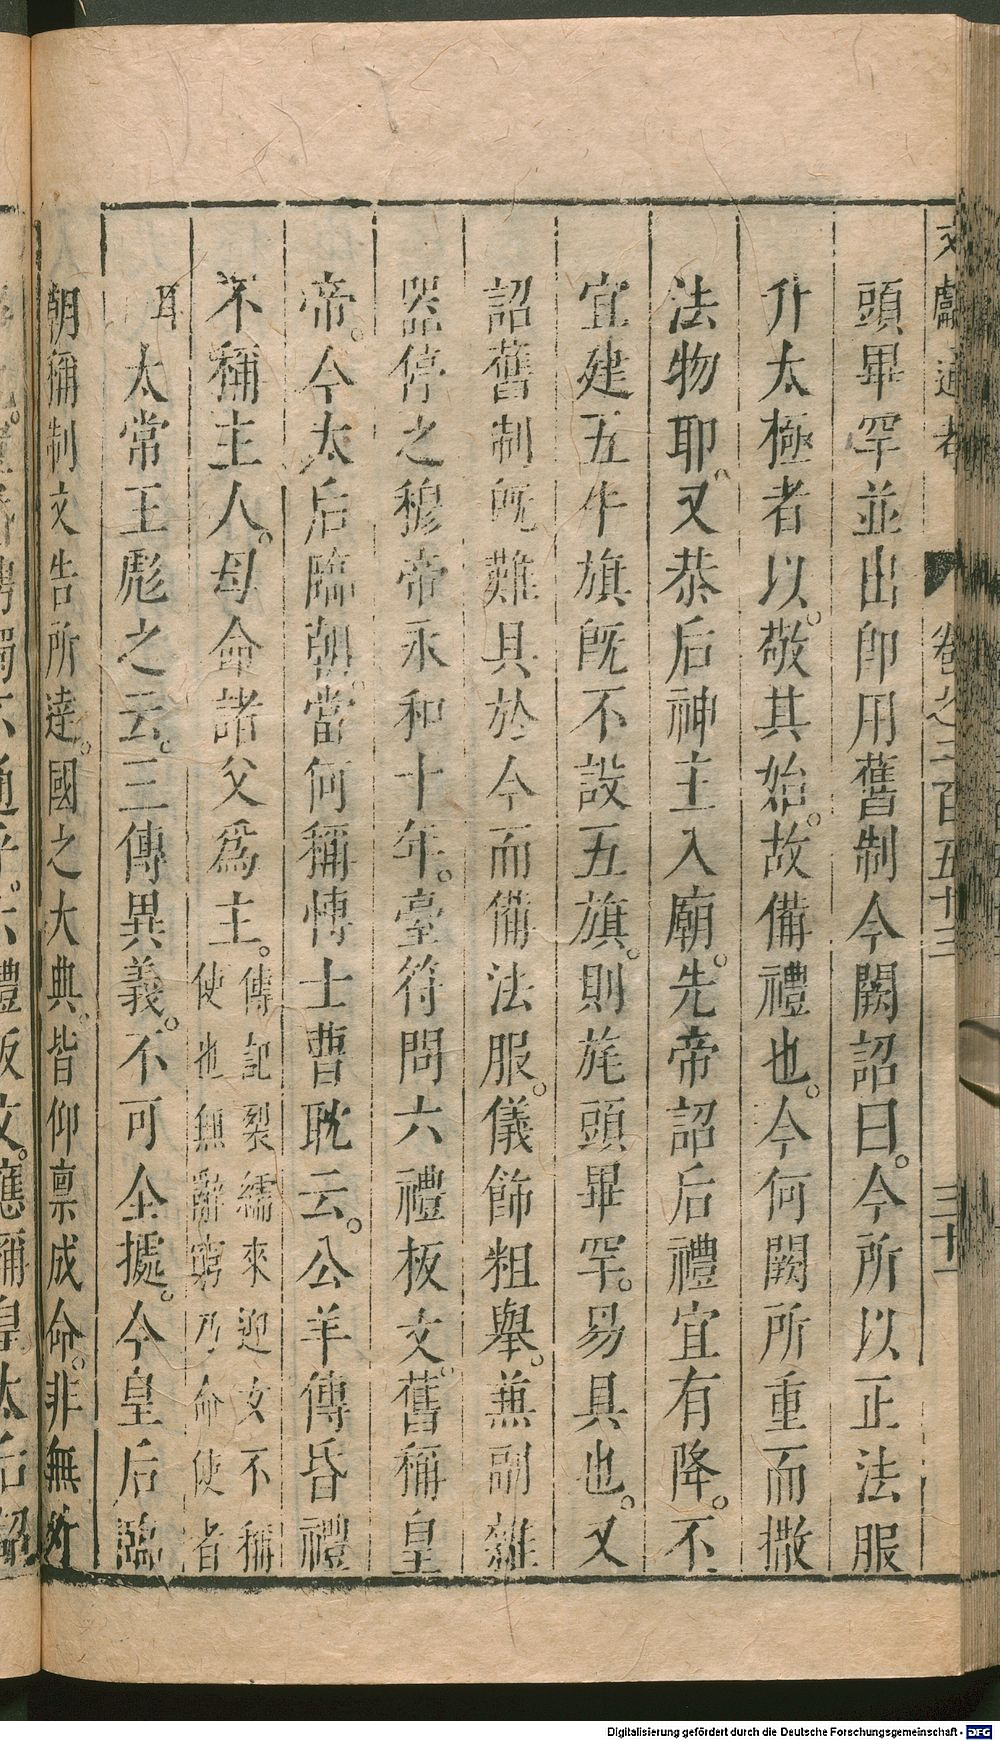 文獻通考 卷之二百五十三 三十一
頭畢罕並出卽用舊制今闕詔曰。今所以正法服
升太極者以。敬其始。故備禮也。今何闕所重而撤
法物耶。又恭后神主入廟。先帝詔后禮宜有降。不
宜建五牛旗旣不設五旗。則旄頭畢罕。易具也。又
詔舊制旣難具於今而備法服。儀飾粗舉。兼副雜
器停之穆帝永和十年。臺符問六禮板文。舊稱皇
帝。今太后臨朝。當何稱博士曹耽云。公羊傳昏禮
不稱主人。母命諸父爲主。傳記裂繻來迎女不稱使也無辭窮乃命使者
耳太常王彪之云。三傳異義。不可全據。今皇后臨
朝稱制文告所達。國之大典。皆仰禀成命。非無外
通乎。六禮版文。應稱皇太后詔